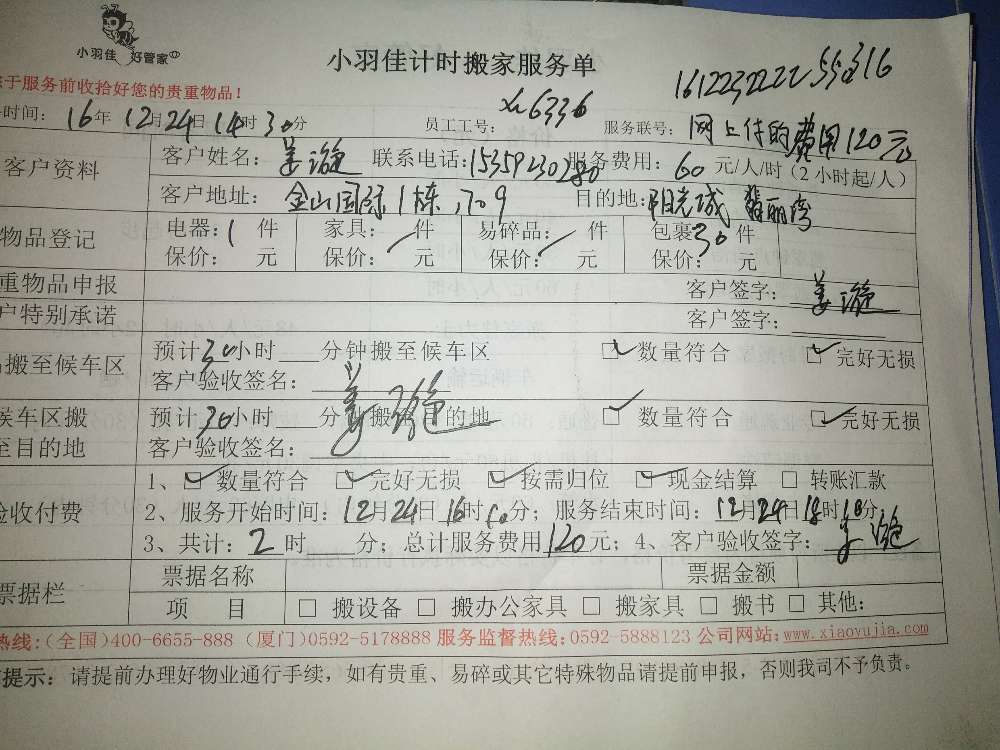 小羽佳 好管家
小羽佳计时搬家服务单
于服务前收拾好您的贵重物品！
1612232222 55316
时间：16年12月24日14时30分 员工工号： 6336 服务联号： 网上付的费用120元
客户资料 客户姓名：姜漩 联系电话：15359230280 服务费用：60元/人/时（2小时起/人）
客户地址：金山国际1栋，709 目的地：阳光城 翡丽湾
物品登记 电器：1件 家具： 件 易碎品： 件 包裹30件
保价： 元 保价： 元 保价： 元 保价： 元
重物品申报 客户签字：姜漩
户特别承诺 客户签字：
搬至候车区 预计30小时 分钟搬至候车区 数量符合 完好无损
客户验收签名：姜漩
候车区搬 预计30小时 分钟搬至目的地 数量符合 完好无损
至目的地 客户验收签名：
验收付费 1、 数量符合 完好无损 按需归位 现金结算 转账汇款
2、服务开始时间：12月24日16时10分；服务结束时间：12月24日18时10分
3、共计：2时 分；总计服务费用120元；4、客户验收签字：姜漩
票据栏 票据名称 票据金额
项 目 搬设备 搬办公家具 搬家具 搬书 其他：
热线：(全国)400-6655-888 (厦门)0592-5178888 服务监督热线：0592-5888123 公司网站：www.xiaoyujia.com
提示：请提前办理好物业通行手续，如有贵重、易碎或其它特殊物品请提前申报，否则我司不予负责。